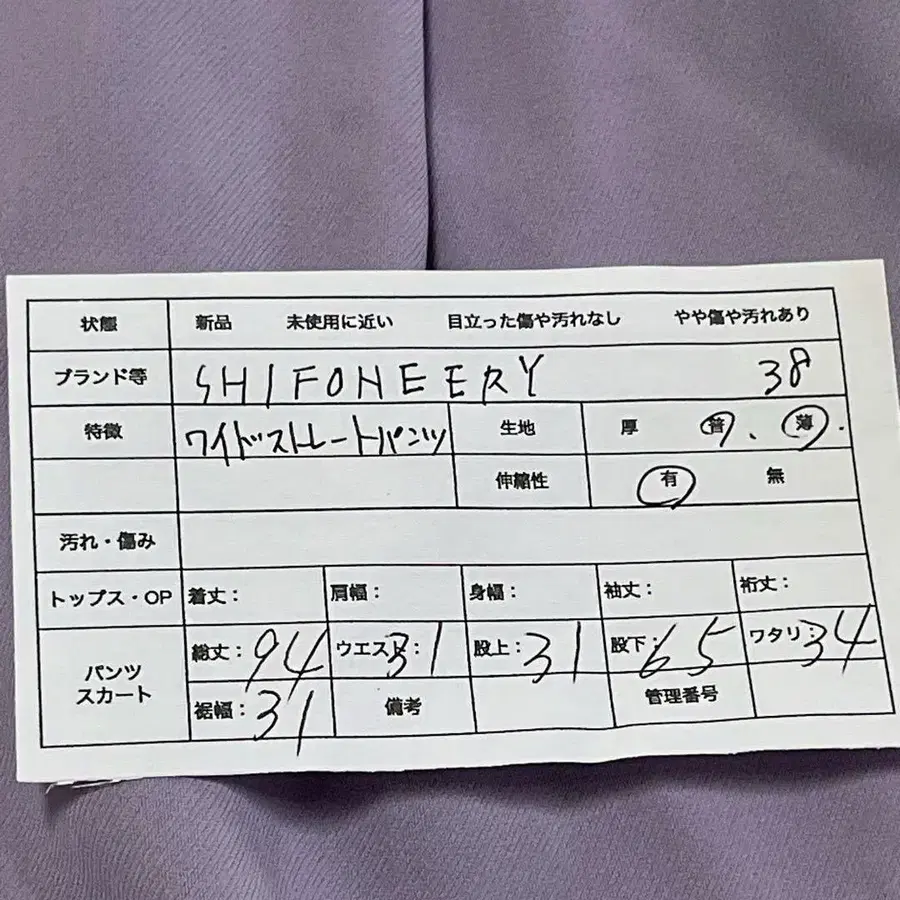 状態 新品 未使用に近い 目立った傷や汚れなし やや傷や汚れあり
ブランド等 SHIFONEERY 38
特徴 ワイドストレートパンツ 生地 厚 普、薄.
伸縮性 有 無
汚れ・傷み
トップス・OP 着丈: 肩幅: 身幅: 袖丈: 裄丈:
パンツ スカート 総丈:94 ウエスト:31 股上:31 股下:65 ワタリ:34
裾幅:31 備考 管理番号